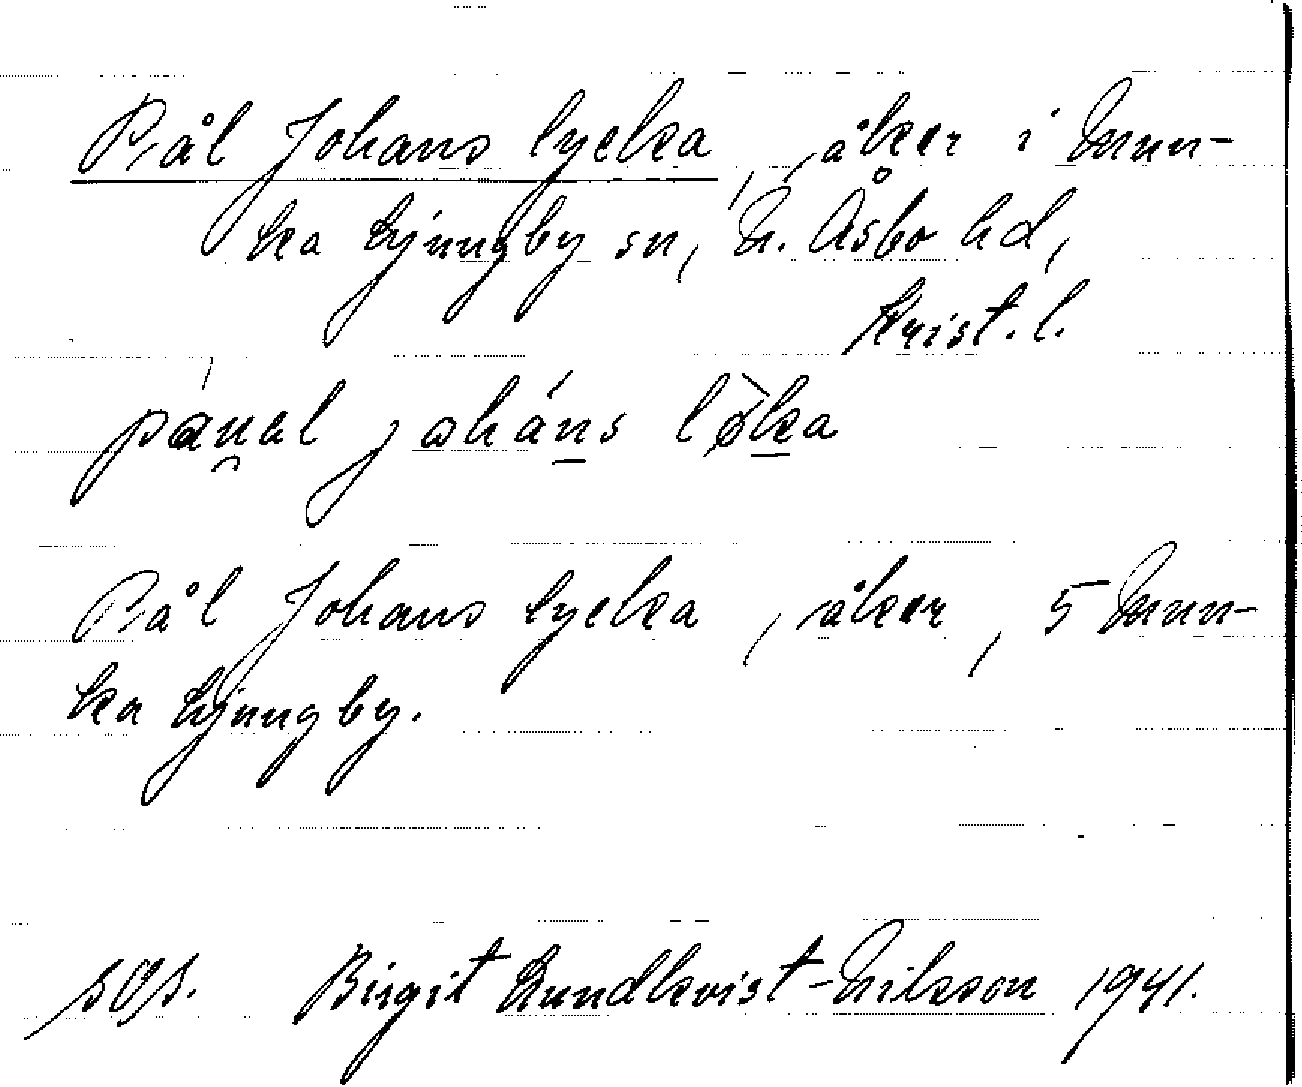 Pål Johans lycka, åker i Mun-
ka Ljungby sn, N. Åsbo hd,
Krist. l.
påu̯al joháns lø̀ka
Pål Johans lycka, åker, 5 Mun-
ka Ljungby.
Birgit Lundkvist-Nilsson 1941.